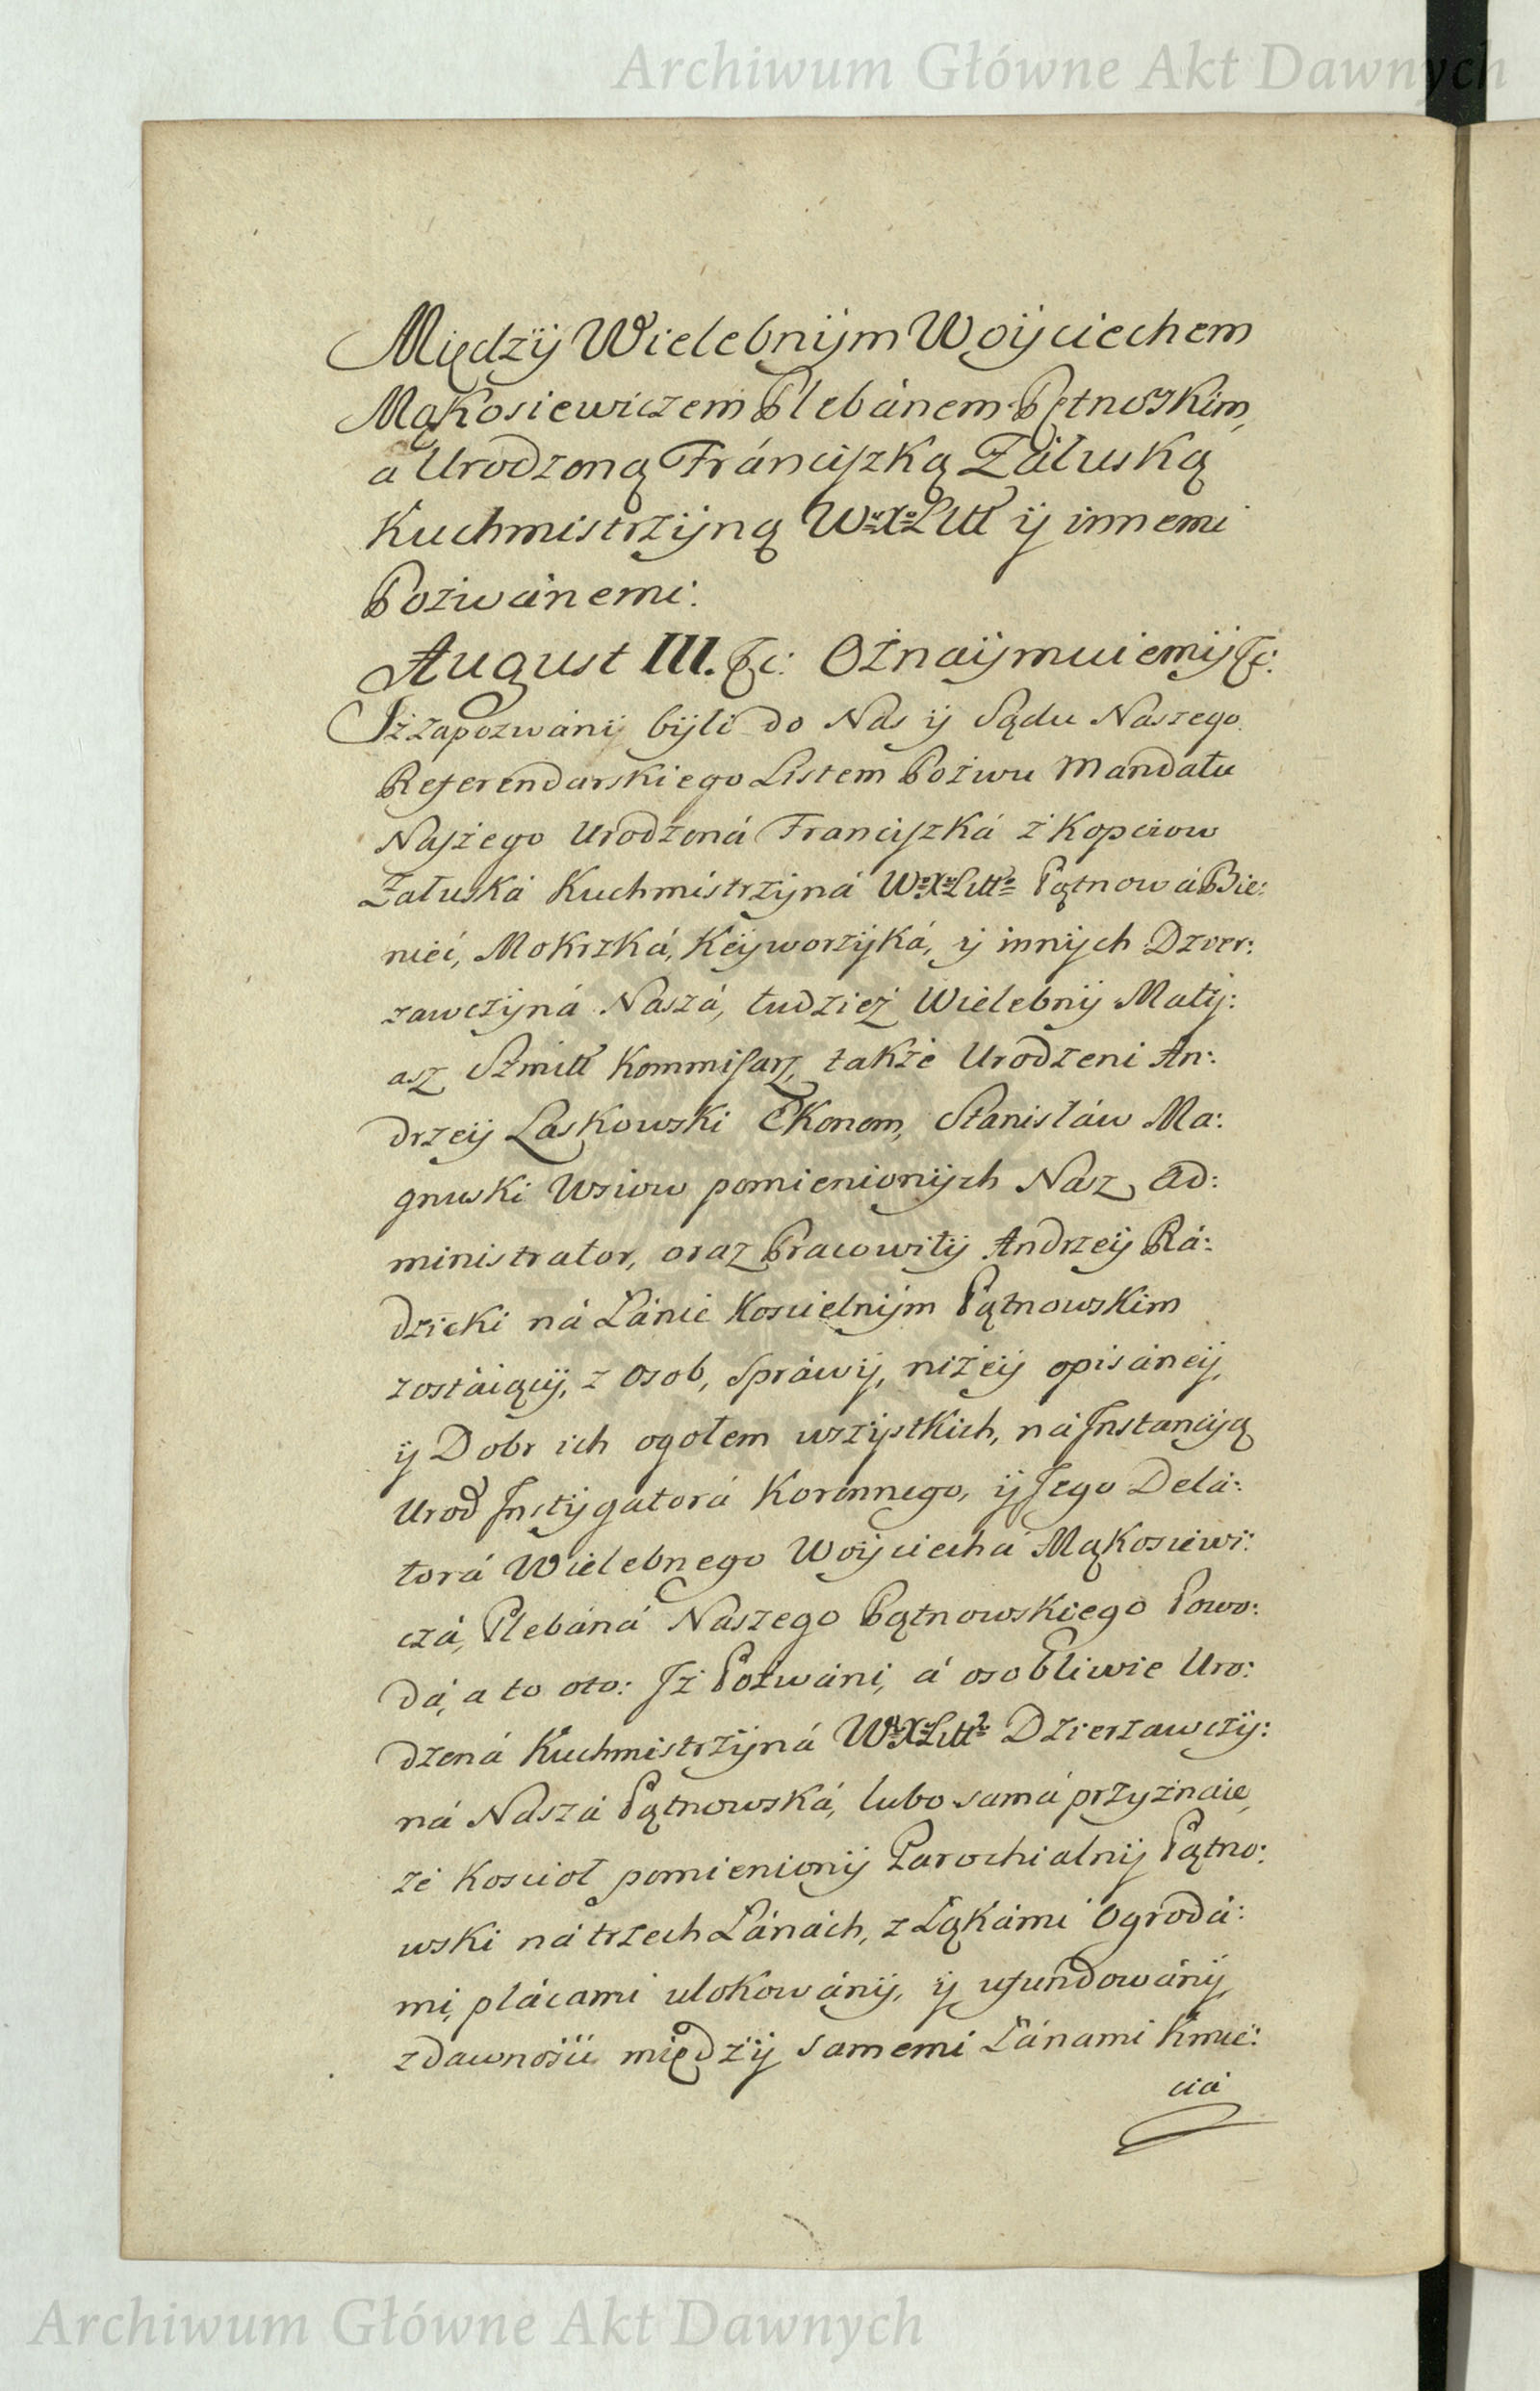 Archiwum Główne Akt Dawnych
Między Wielebnÿm Woÿciechem
Mąkosiewiczem Plebánem Pętnoskim,
a Urodzoną Fránciszką Záłuską
Kuchmistrzÿną WoXoLitt ÿ innemi
Pozwánemi:
August III. &c: Oznaÿmuiemÿ &c:
Iż zapozwánÿ bÿli do Nas ÿ Sądu Naszego
Referendarskiego Listem Pozwu Mandatu
Naszego Urodzoná Franciszká z Kopciow
Załuská Kuchmistrzÿná WoXoLitto Pątnowá Bie:
nieć, Mokrzká, Keÿworzÿká, ÿ innÿch Dzier:
zawczÿná Naszá, tudziez Wielebnÿ Matÿ:
asz Szmitt Kommisarz, także Urodzeni An:
drzeÿ Laskowski Ekonom, Stanisłáw Ma:
gnuski Wsiow pomienionÿch Nasz Ad:
ministrator, oraz Pracowitÿ Andrzeÿ Rá:
dzicki ná Łánie Koscielnÿm Pątnowskim
zostáiącÿ, z Osob, Spráwÿ, niżeÿ opisáneÿ,
ÿ Dobr ich ogołem wszÿstkich, ná Instancÿą
Urod Instÿgatorá Koronnego, ÿ Jego Delá:
torá Wielebnego Woÿciechá Mąkosiewi:
czá, Plebáná Naszego Pątnowskiego Powo:
dá, a to oto: Iż Pozwáni, á osobliwie Uro:
dzoná Kuchmistrzÿná WoXoLitto Dzierzawczÿ:
ná Naszá Pątnowská, lubo samá przyznaie,
że Koscioł pomienionÿ Parochialnÿ Pątno:
wski ná trzech Łánách, z Łąkámi Ogrodá:
mi, plácami ulokowánÿ, ÿ ufundowánÿ,
zdawnosci międzÿ samemi Łánami Kmie:
ciá
Archiwum Główne Akt Dawnych